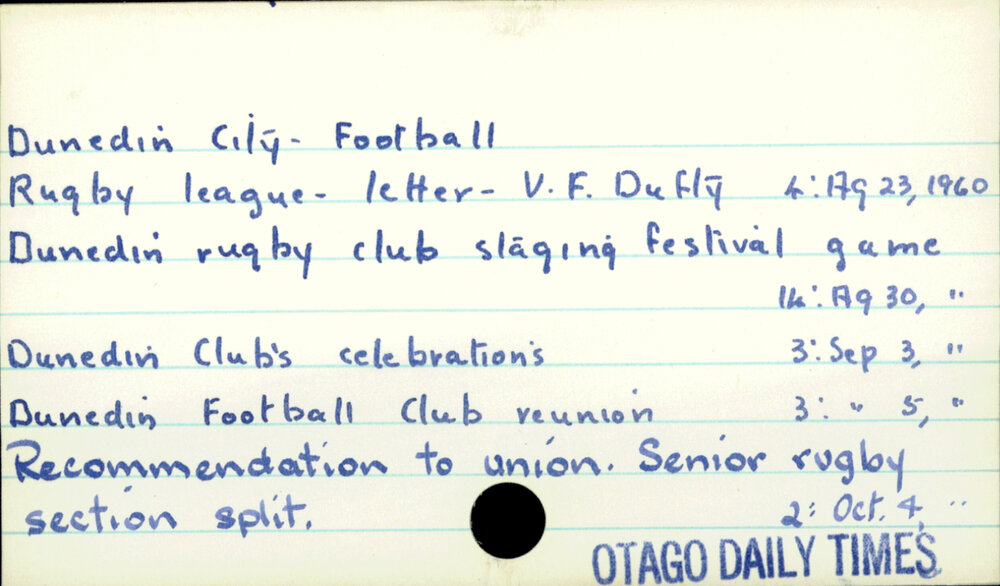 Dunedin City - Football
Rugby league - letter - V. F. Duffy 4: Ag 23, 1960
Dunedin rugby club staging festival game
14: Ag 30, "
Dunedin Club's celebrations 3: Sep 3, "
Dunedin Football Club reunion 3: " 5, "
Recommendation to union. Senior rugby
section split. 2: Oct. 4, "
OTAGO DAILY TIMES